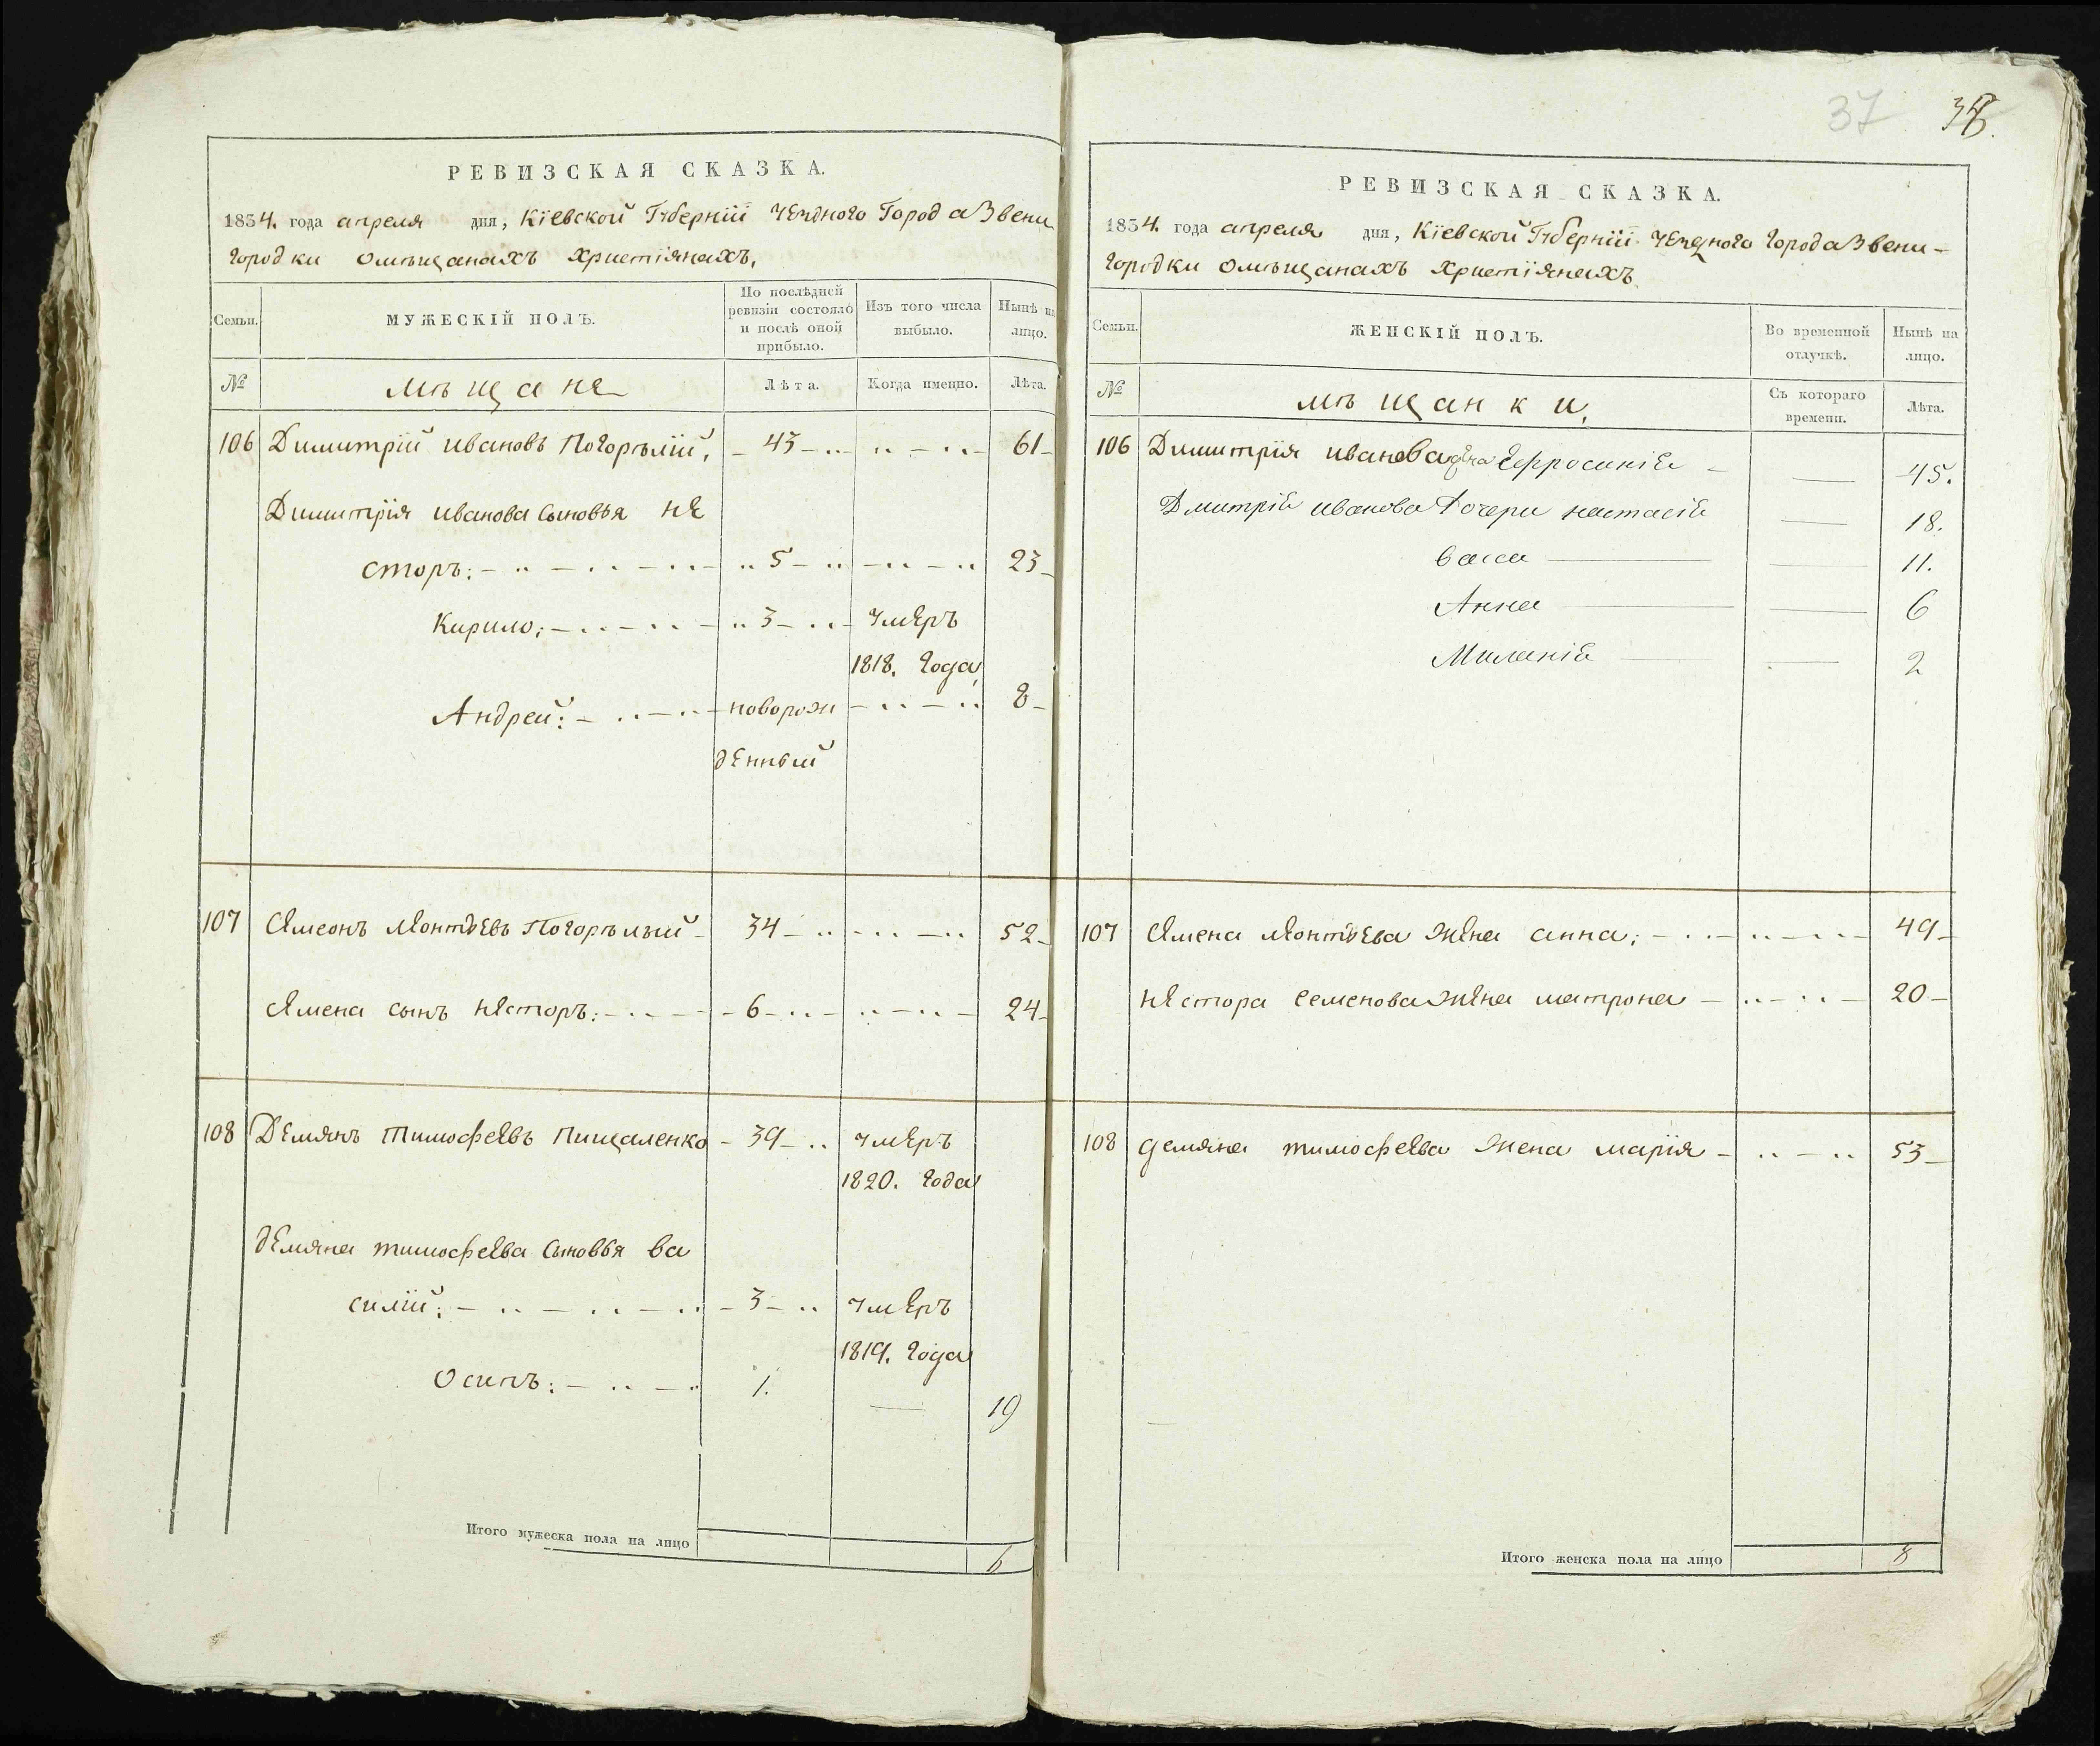 37 38.
РЕВИЗСКАЯ СКАЗКА.
1834. года апреля дня, Кіевской Губерніи уезднаго Города Звени
городки омѣщанахъ христіянахъ.
Семьи. МУЖЕСКІЙ ПОЛЪ. По послѣдней ревизіи состояло и послѣ оной прибыло. Изъ того числа выбыло. Нынѣ на лицо.
№ мѣщане Лѣта. Когда имянно. Лѣта.
106 Димитрій ивановъ Погорѣлій, 43 61
Димитрія иванова сыновья не
сторъ: 5 23
Кирило: 3 умеръ
1818. года
Андрей: новорож 8
денный
107 Семонъ леонтѣевъ Погорѣлый 34 52
Семена сынъ несторъ: 6 24
108 Демянъ тимофеевъ Пищаленко 39 умеръ
1820. года
демяна тимофеева сыновья ва
силій: 3 умеръ
1819. года
осипъ: 1. 19
Итого мужеска пола на лицо 6
РЕВИЗСКАЯ СКАЗКА.
1834. года апреля дня, Кіевской Губерніи уезднаго города Звени-
городки омѣщанахъ христіянахъ
Семьи. ЖЕНСКІЙ ПОЛЪ. Во временной отлучкѣ. Нынѣ на лицо.
№ мѣщанки, Съ котораго времени. Лѣта.
106 Димитрія иванова жена Ефросинія 45.
Дмитрія иванова дочери настасія 18.
васса 11.
Анна 6
Миланія 2
107 Семена леонтѣева жена анна: 49
нестора семенова жена матрона 20
108 демяна тимофеева жена марія 53
Итого женска пола на лицо 8